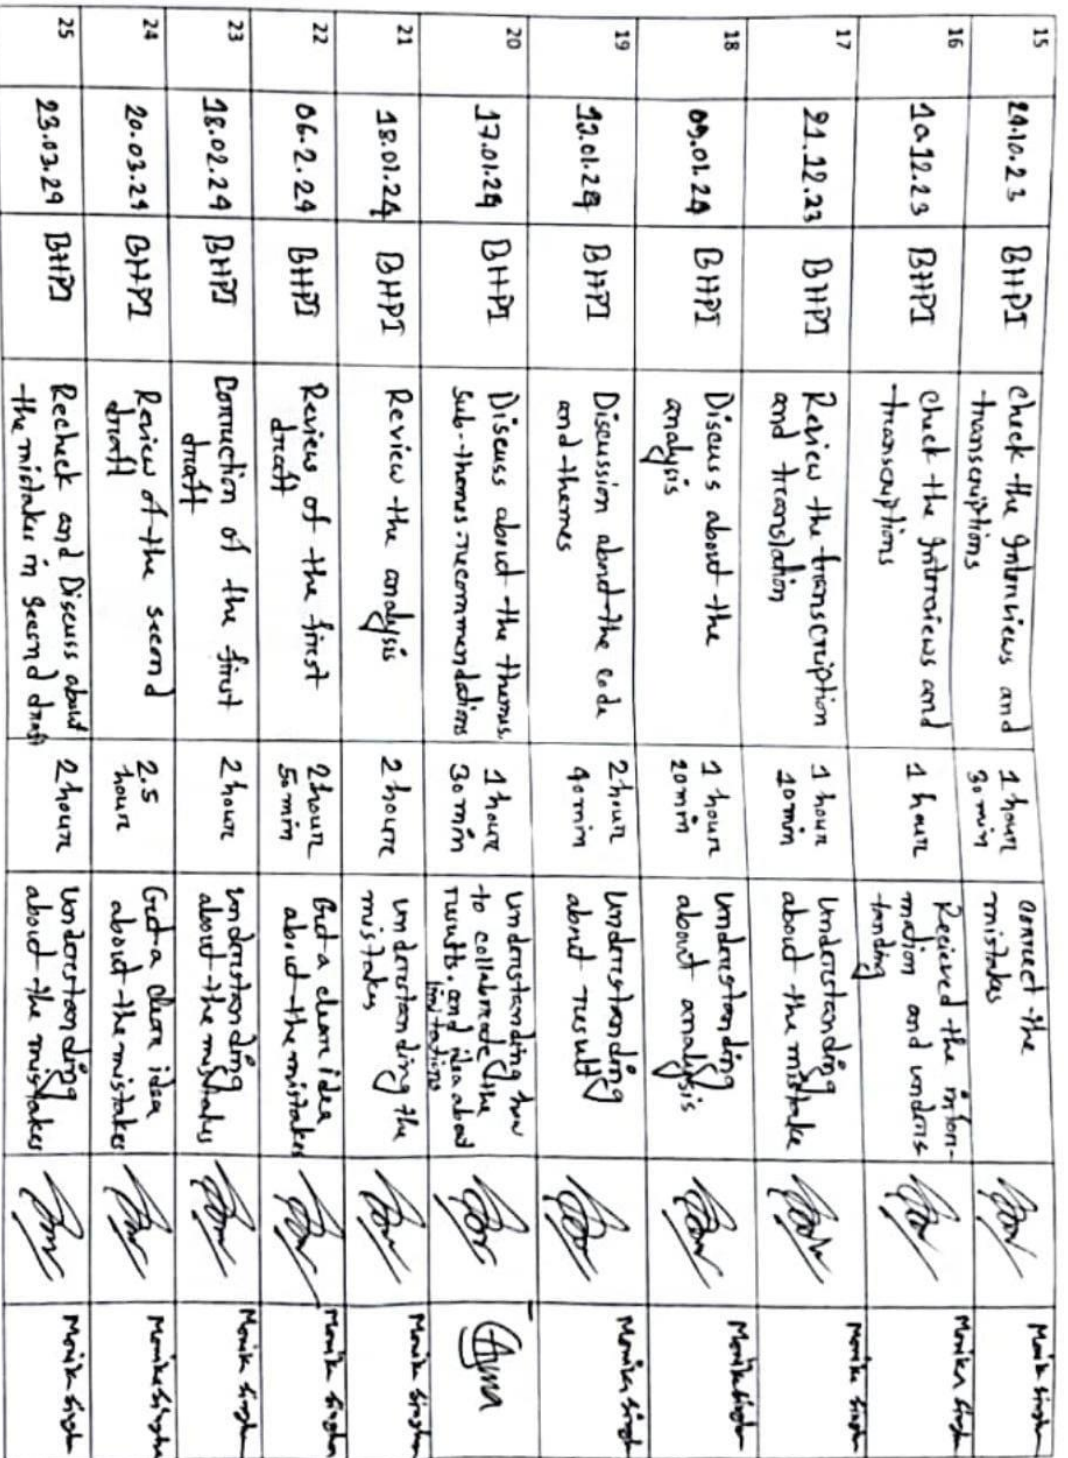 15
24.10.23
BHPI
check the Interviews and
transcriptions
1 hour
30 min
correct the
mistakes
Monika Singha
16
10.12.23
BHPI
check the Interviews and
transcriptions
1 hour
Recieved the infor-
mation and unders-
tanding
Monika Singha
17
21.12.23
BHPI
Review the transcription
and translation
1 hour
10 min
Understanding
about the mistake
Monika Singha
18
09.01.24
BHPI
Discuss about the
analysis
1 hour
20 min
Understanding
about analysis
Monika Singha
19
12.01.24
BHPI
Discussion about the code
and themes
2 hour
40 min
Understanding
about result
Monika Singha
20
17.01.24
BHPI
Discuss about the themes,
sub-themes, recommendations
1 hour
30 min
Understanding how
to collaborate the
results, and idea about
limitations
21
18.01.24
BHPI
Review the analysis
2 hour
understanding the
mistakes
Monika Singha
22
06.2.24
BHPI
Review of the first
draft
2 hour
50 min
Got a clear idea
about the mistakes
Monika Singha
23
18.02.24
BHPI
Correction of the first
draft
2 hour
Understanding
about the mistakes
Monika Singha
24
20.03.24
BHPI
Review of the second
draft
2.5
hour
Got a clear idea
about the mistakes
Monika Singha
25
23.03.24
BHPI
Recheck and Discuss about
the mistakes in second draft
2 hour
Understanding
about the mistakes
Monika Singha